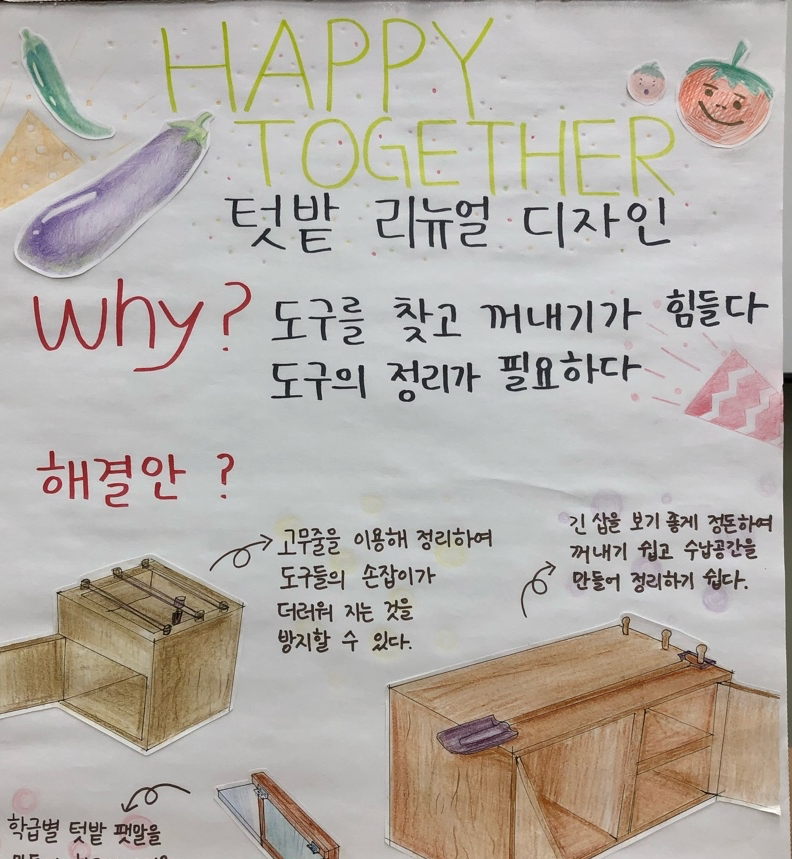 HAPPY
TOGETHER
텃밭 리뉴얼 디자인
Why? 도구를 찾고 꺼내기가 힘들다
도구의 정리가 필요하다
해결안 ?
고무줄을 이용해 정리하여
도구들의 손잡이가
더러워 지는 것을
방지할 수 있다.
긴 삽을 보기 좋게 정돈하여
꺼내기 쉽고 수납공간을
만들어 정리하기 쉽다.
학급별 텃밭 팻말을